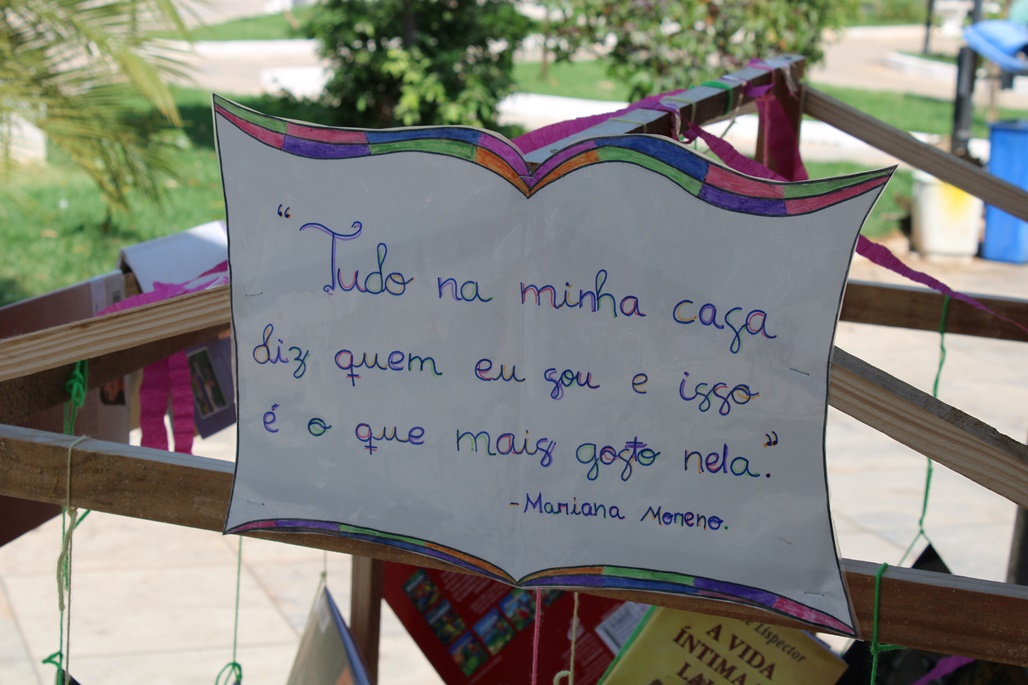 “Tudo na minha casa
diz quem eu sou e isso
é o que mais gosto nela.”
-Mariana Moreno.
Lispector
A VIDA
ÍNTIMA